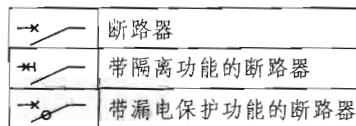 断路器
带隔离功能的断路器
带漏电保护功能的断路器